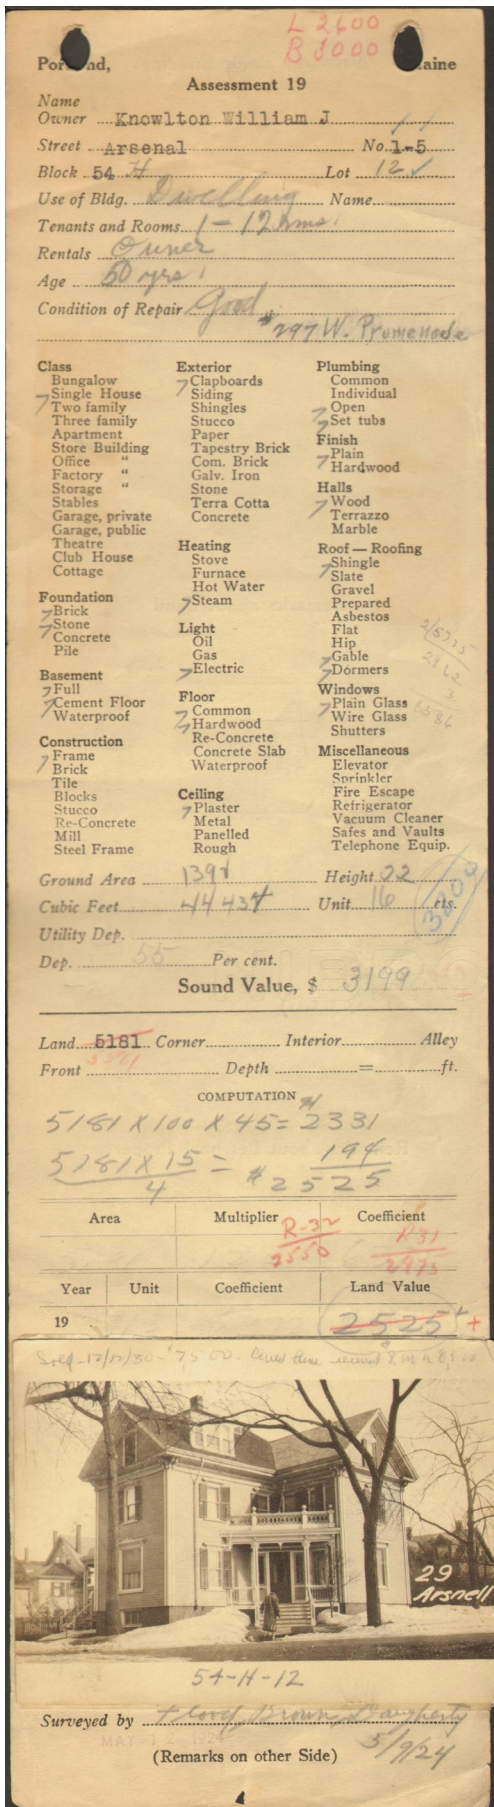 L 2600
B 3000
Portland, Maine
Assessment 19
Name
Owner Knowlton William J
Street Arsenal No. 1-5
Block 54 H Lot 12 ✓
Use of Bldg. Dwelling Name
Tenants and Rooms 1 - 12 rms.
Rentals Owner
Age 50 yrs.
Condition of Repair Good
#297 W. Promenade
Class
Bungalow
Single House
Two family
Three family
Apartment
Store Building
Office "
Factory "
Storage "
Stables
Garage, private
Garage, public
Theatre
Club House
Cottage
Foundation
Brick
Stone
Concrete
Pile
Basement
Full
Cement Floor
Waterproof
Construction
Frame
Brick
Tile
Blocks
Stucco
Re-Concrete
Mill
Steel Frame
Exterior
Clapboards
Siding
Shingles
Stucco
Paper
Tapestry Brick
Com. Brick
Galv. Iron
Stone
Terra Cotta
Concrete
Heating
Stove
Furnace
Hot Water
Steam
Light
Oil
Gas
Electric
Floor
Common
Hardwood
Re-Concrete
Concrete Slab
Waterproof
Ceiling
Plaster
Metal
Panelled
Rough
Plumbing
Common
Individual
Open
Set tubs
Finish
Plain
Hardwood
Halls
Wood
Terrazzo
Marble
Roof — Roofing
Shingle
Slate
Gravel
Prepared
Asbestos
Flat
Hip
Gable
Dormers
Windows
Plain Glass
Wire Glass
Shutters
Miscellaneous
Elevator
Sprinkler
Fire Escape
Refrigerator
Vacuum Cleaner
Safes and Vaults
Telephone Equip.
Ground Area Height 22
Cubic Feet Unit 16 cts.
3200
Utility Dep.
Dep. 55 Per cent.
Sound Value, $ 3199
Land 5181 Corner Interior Alley
Front Depth = ft.
COMPUTATION
5181 X 100 X 45 = 2331
5181 X 15 = 194
4 $2525
Area Multiplier Coefficient
R-32 R31
2550 2875
Year Unit Coefficient Land Value
19 2525 +
29
Arsnell
54-H-12
Surveyed by Flood, Brown, Daugherty
5/9/24
(Remarks on other Side)